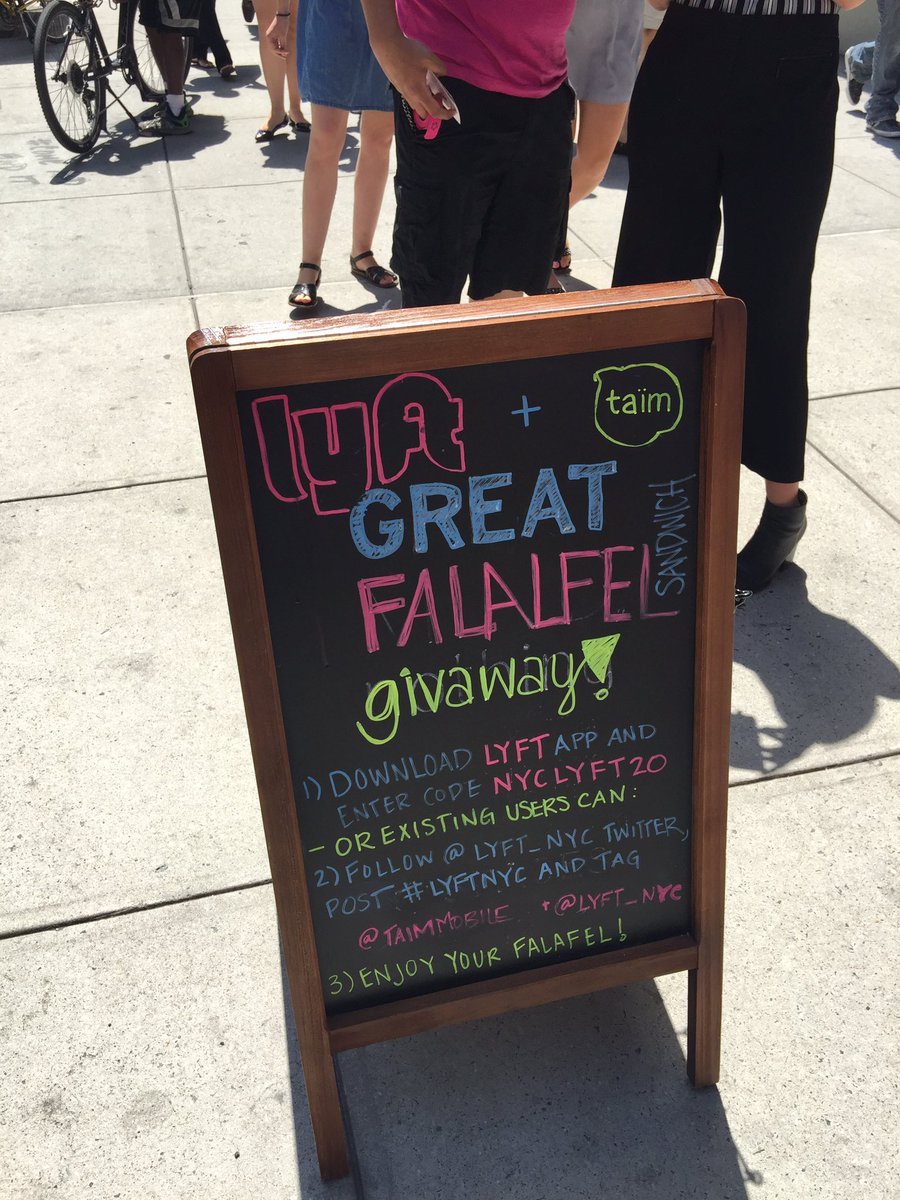 lyft + taïm
GREAT
FALALFEL SANDWICH
givaway!
1) DOWNLOAD LYFT APP AND
ENTER CODE NYCLYFT20
- OR EXISTING USERS CAN:
2) FOLLOW @LYFT_NYC TWITTER,
POST #LYFTNYC AND TAG
@TAIMMOBILE + @LYFT_NYC
3) ENJOY YOUR FALAFEL!